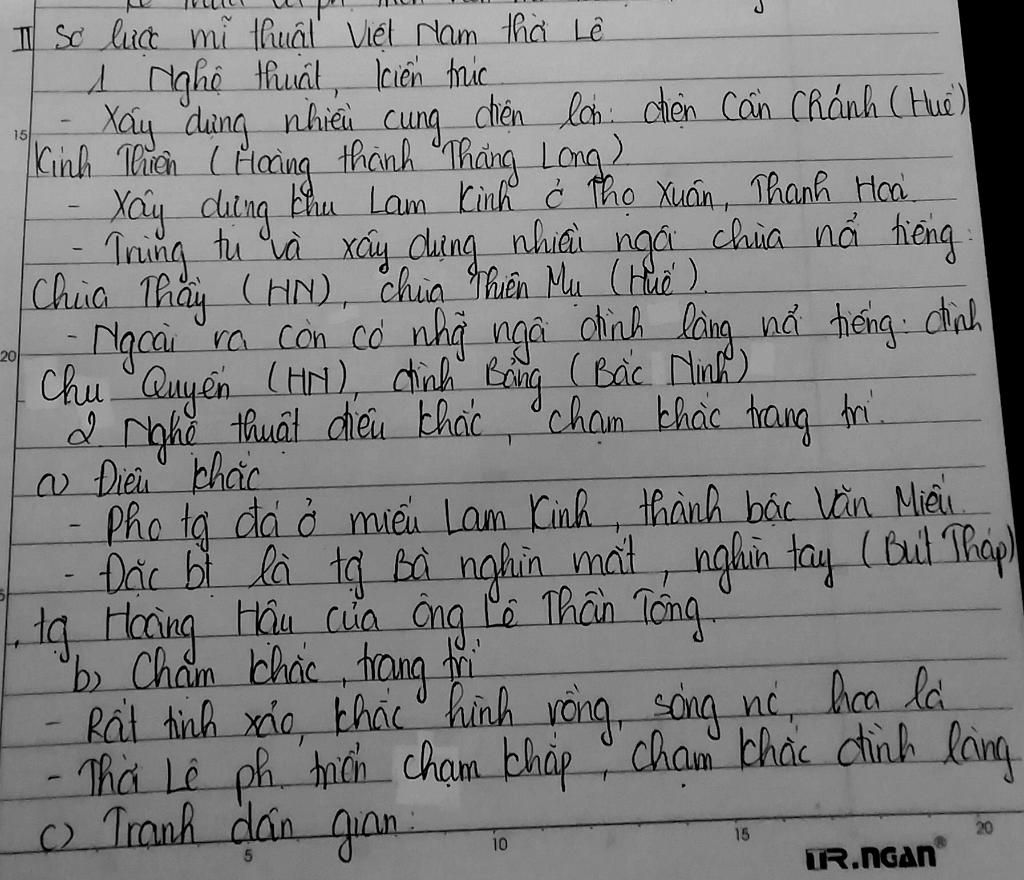 II Sơ lược mĩ thuật Việt Nam thời Lê
1 Nghệ thuật, kiến trúc
- Xây dựng nhiều cung điện lớn: điện Cần Chánh (Huế)
Kính Thiên (Hoàng thành Thăng Long)
15
- Xây dựng khu Lam Kinh ở Thọ Xuân, Thanh Hoá.
- Trùng tu và xây dựng nhiều ngôi chùa nổ tiếng:
Chùa Thầy (HN), chùa Thiên Mụ (Huế).
- Ngoài ra còn có nhg ngôi đình làng nổ tiếng: đình
20
Chu Quyến (HN), đình Bảng (Bắc Ninh)
2 Nghệ thuật điêu khắc, chạm khắc trang trí.
a) Điêu khắc
- Pho tg đá ở miếu Lam Kinh, thành bậc Văn Miếu.
- Đặc bt là tg Bà nghìn mắt, nghìn tay (Bút Tháp)
, tg Hoàng Hậu của ông Lê Thần Tông.
b) Chạm khắc, trang trí
- Rất tinh xảo, khắc hình rồng, sóng nc, hoa lá
- Thời Lê ph. triển chạm khắp, chạm khắc đình làng
c) Tranh dân gian:
5 10 15 20
TR.NGAN®